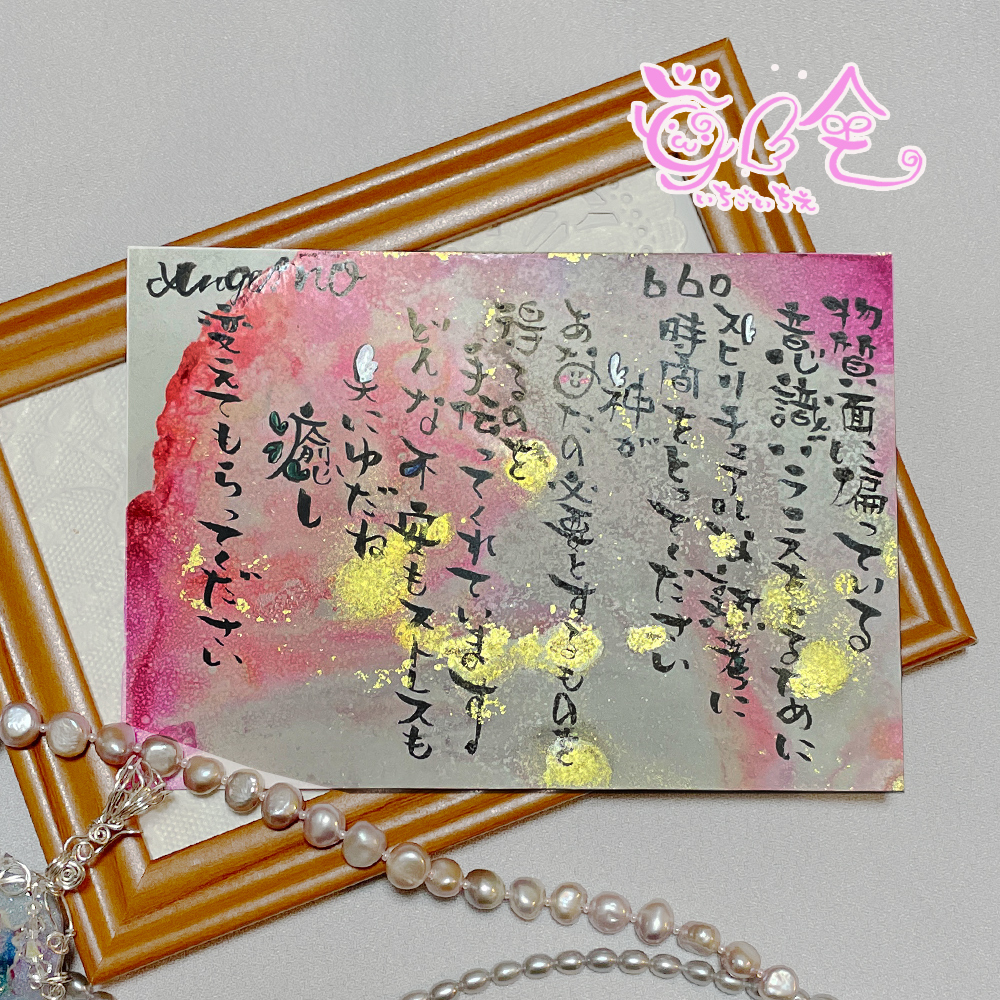 いちごいちえ
Angel NO
660
物質面に偏っている
意識バランスをとるために
スピリチュアルな熟考に
時間をとってください
神が
あなたの必要とするものを
得るのを
手伝ってくれています
どんな不安もストレスも
天にゆだね
癒し
変えてもらってください